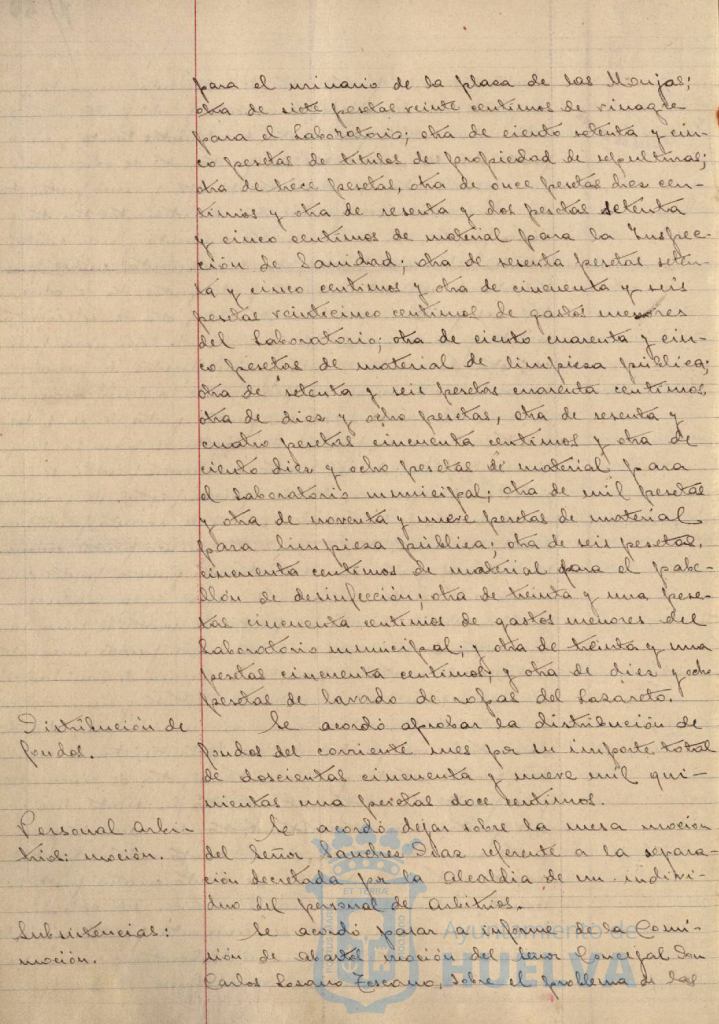 para el urinario de la plaza de las Monjas;
otra de siete pesetas veinte centimos de vinagre
para el Laboratorio; otra de ciento setenta y cin-
co pesetas de titulos de propiedad de sepulturas;
otra de trece pesetas, otra de once pesetas diez cen-
timos y otra de sesenta y dos pesetas setenta
y cinco centimos de material para la Inspec-
ción de Sanidad; otra de sesenta pesetas seten-
ta y cinco centimos y otra de cincuenta y seis
pesetas veinticinco centimos de gastos menores
del Laboratorio; otra de ciento cuarenta y cin-
co pesetas de material de limpieza pública;
otra de setenta y seis pesetas cuarenta centimos,
otra de diez y ocho pesetas, otra de sesenta y
cuatro pesetas cincuenta centimos y otra de
ciento diez y ocho pesetas de material para
el Laboratorio municipal; otra de mil pesetas
y otra de noventa y nueve pesetas de material
para limpieza pública; otra de seis pesetas,
cincuenta centimos de material para el pabe-
llón de desinfección; otra de treinta y una pese-
tas cincuenta centimos de gastos menores del
Laboratorio municipal; y otra de treinta y una
pesetas cincuenta centimos; y otra de diez y ocho
pesetas de lavado de ropas del Lazareto.
Distribución de Se acordó aprobar la distribución de
fondos. fondos del corriente mes por su importe total
de doscientas cincuenta y nueve mil qui-
nientas una pesetas doce centimos.
Personal Arbi- Se acordó dejar sobre la mesa moción
trios: moción. del Señor Sanchez Diaz referente a la separa-
ción decretada por la Alcaldia de un indivi-
duo del personal de Arbitrios.
Subsistencias: Se acordó pasar a informe de la Comi-
moción. sión de Abastos moción del Señor Concejal Don
Carlos Lozano Toscano, sobre el problema de las
Ayuntamiento de
HUELVA